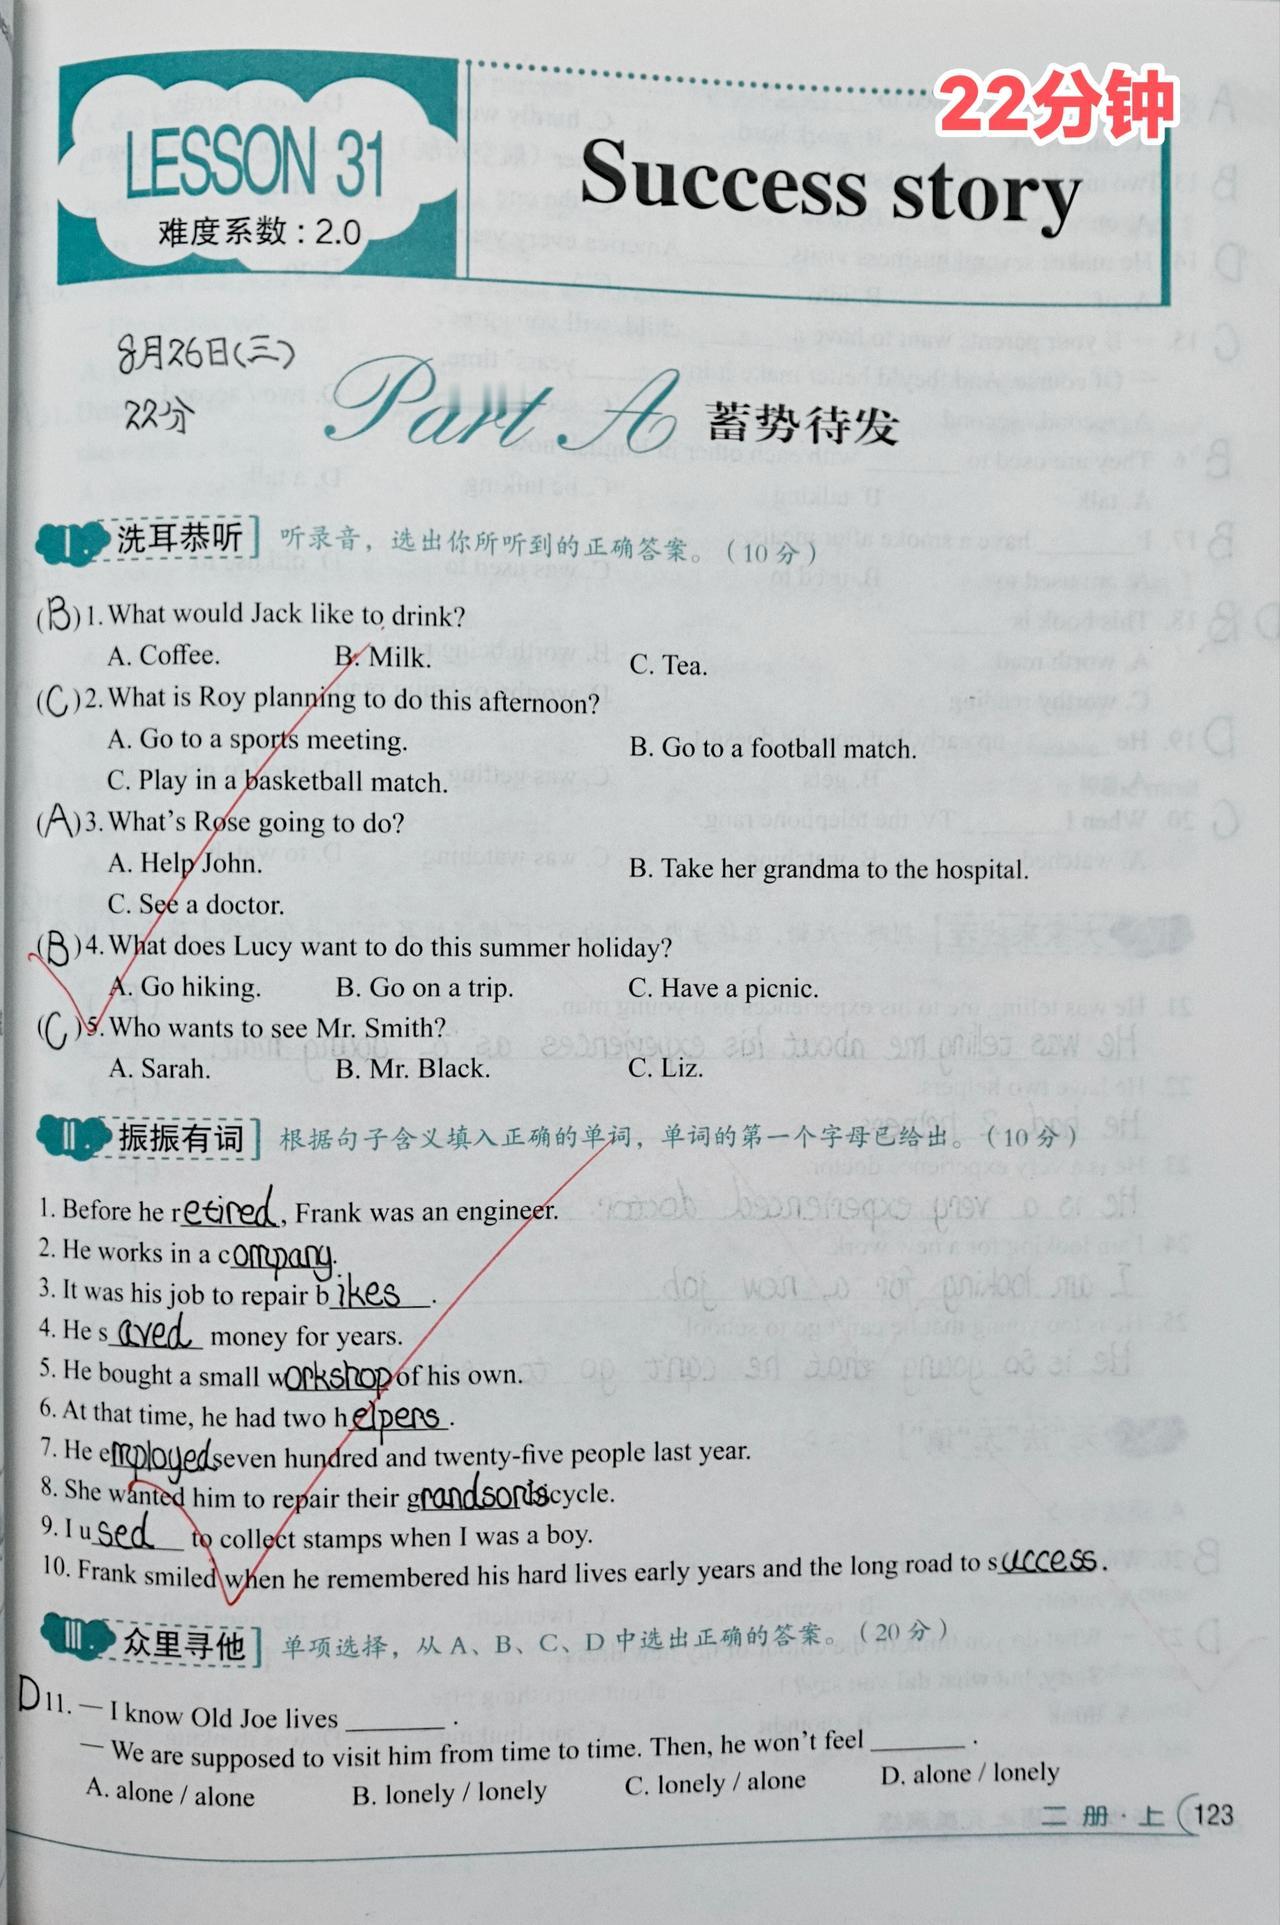 22分钟
LESSON 31
难度系数：2.0
Success story
8月26日(三)
22分
Part A 蓄势待发
I 洗耳恭听 听录音，选出你所听到的正确答案。（10分）
(B)1. What would Jack like to drink?
A. Coffee. B. Milk. C. Tea.
(C)2. What is Roy planning to do this afternoon?
A. Go to a sports meeting. B. Go to a football match.
C. Play in a basketball match.
(A)3. What's Rose going to do?
A. Help John. B. Take her grandma to the hospital.
C. See a doctor.
(B)4. What does Lucy want to do this summer holiday?
A. Go hiking. B. Go on a trip. C. Have a picnic.
(C)5. Who wants to see Mr. Smith?
A. Sarah. B. Mr. Black. C. Liz.
II 振振有词 根据句子含义填入正确的单词，单词的第一个字母已给出。（10分）
1. Before he retired, Frank was an engineer.
2. He works in a company.
3. It was his job to repair bikes.
4. He saved money for years.
5. He bought a small workshop of his own.
6. At that time, he had two helpers.
7. He employed seven hundred and twenty-five people last year.
8. She wanted him to repair their grandson's cycle.
9. I used to collect stamps when I was a boy.
10. Frank smiled when he remembered his hard lives early years and the long road to success.
III 众里寻他 单项选择，从A、B、C、D中选出正确的答案。（20分）
D 11. — I know Old Joe lives ________ .
— We are supposed to visit him from time to time. Then, he won't feel ________ .
A. alone / alone B. lonely / lonely C. lonely / alone D. alone / lonely
二册·上 123